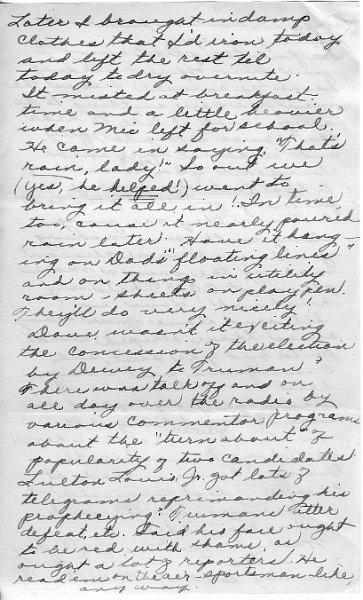 Later I brought in damp
clothes that I'd iron today
and left the rest til
today to dry overnite.
It misted at breakfast-
time and a little heavier
when Mic left for school.
He came in saying, "That's
rain, lady!" So out we
(yes, he helped!) went to
bring it all in! In time,
too, cause it nearly poured
rain later. Have it hang-
ing on Dad's "floating lines"
and on things in utility
room - sheets on play pen.
They'll do very nicely!
Dave, wasn't it exciting
the concession of the election
by Dewey to Truman?
There was talk off and on
all day over the radio by
various commentor programs
about the "turn about" of
popularity of two candidates
Fulton Lewis, Jr. got lots of
telegrams reprimanding his
prophecying Trumans utter
defeat, etc. Said his face ought
to be red with shame, as
ought a lot of reporters. He
read em on the aer - sportsman-like
any way.